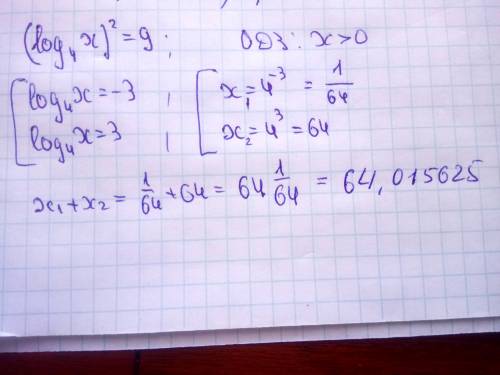 (log₄x)² = 9 ; ОДЗ: x>0
[ log₄x = -3 ; [ x₁ = 4⁻³ = 1/64
log₄x = 3 ; x₂ = 4³ = 64
x₁ + x₂ = 1/64 + 64 = 64 1/64 = 64,015625